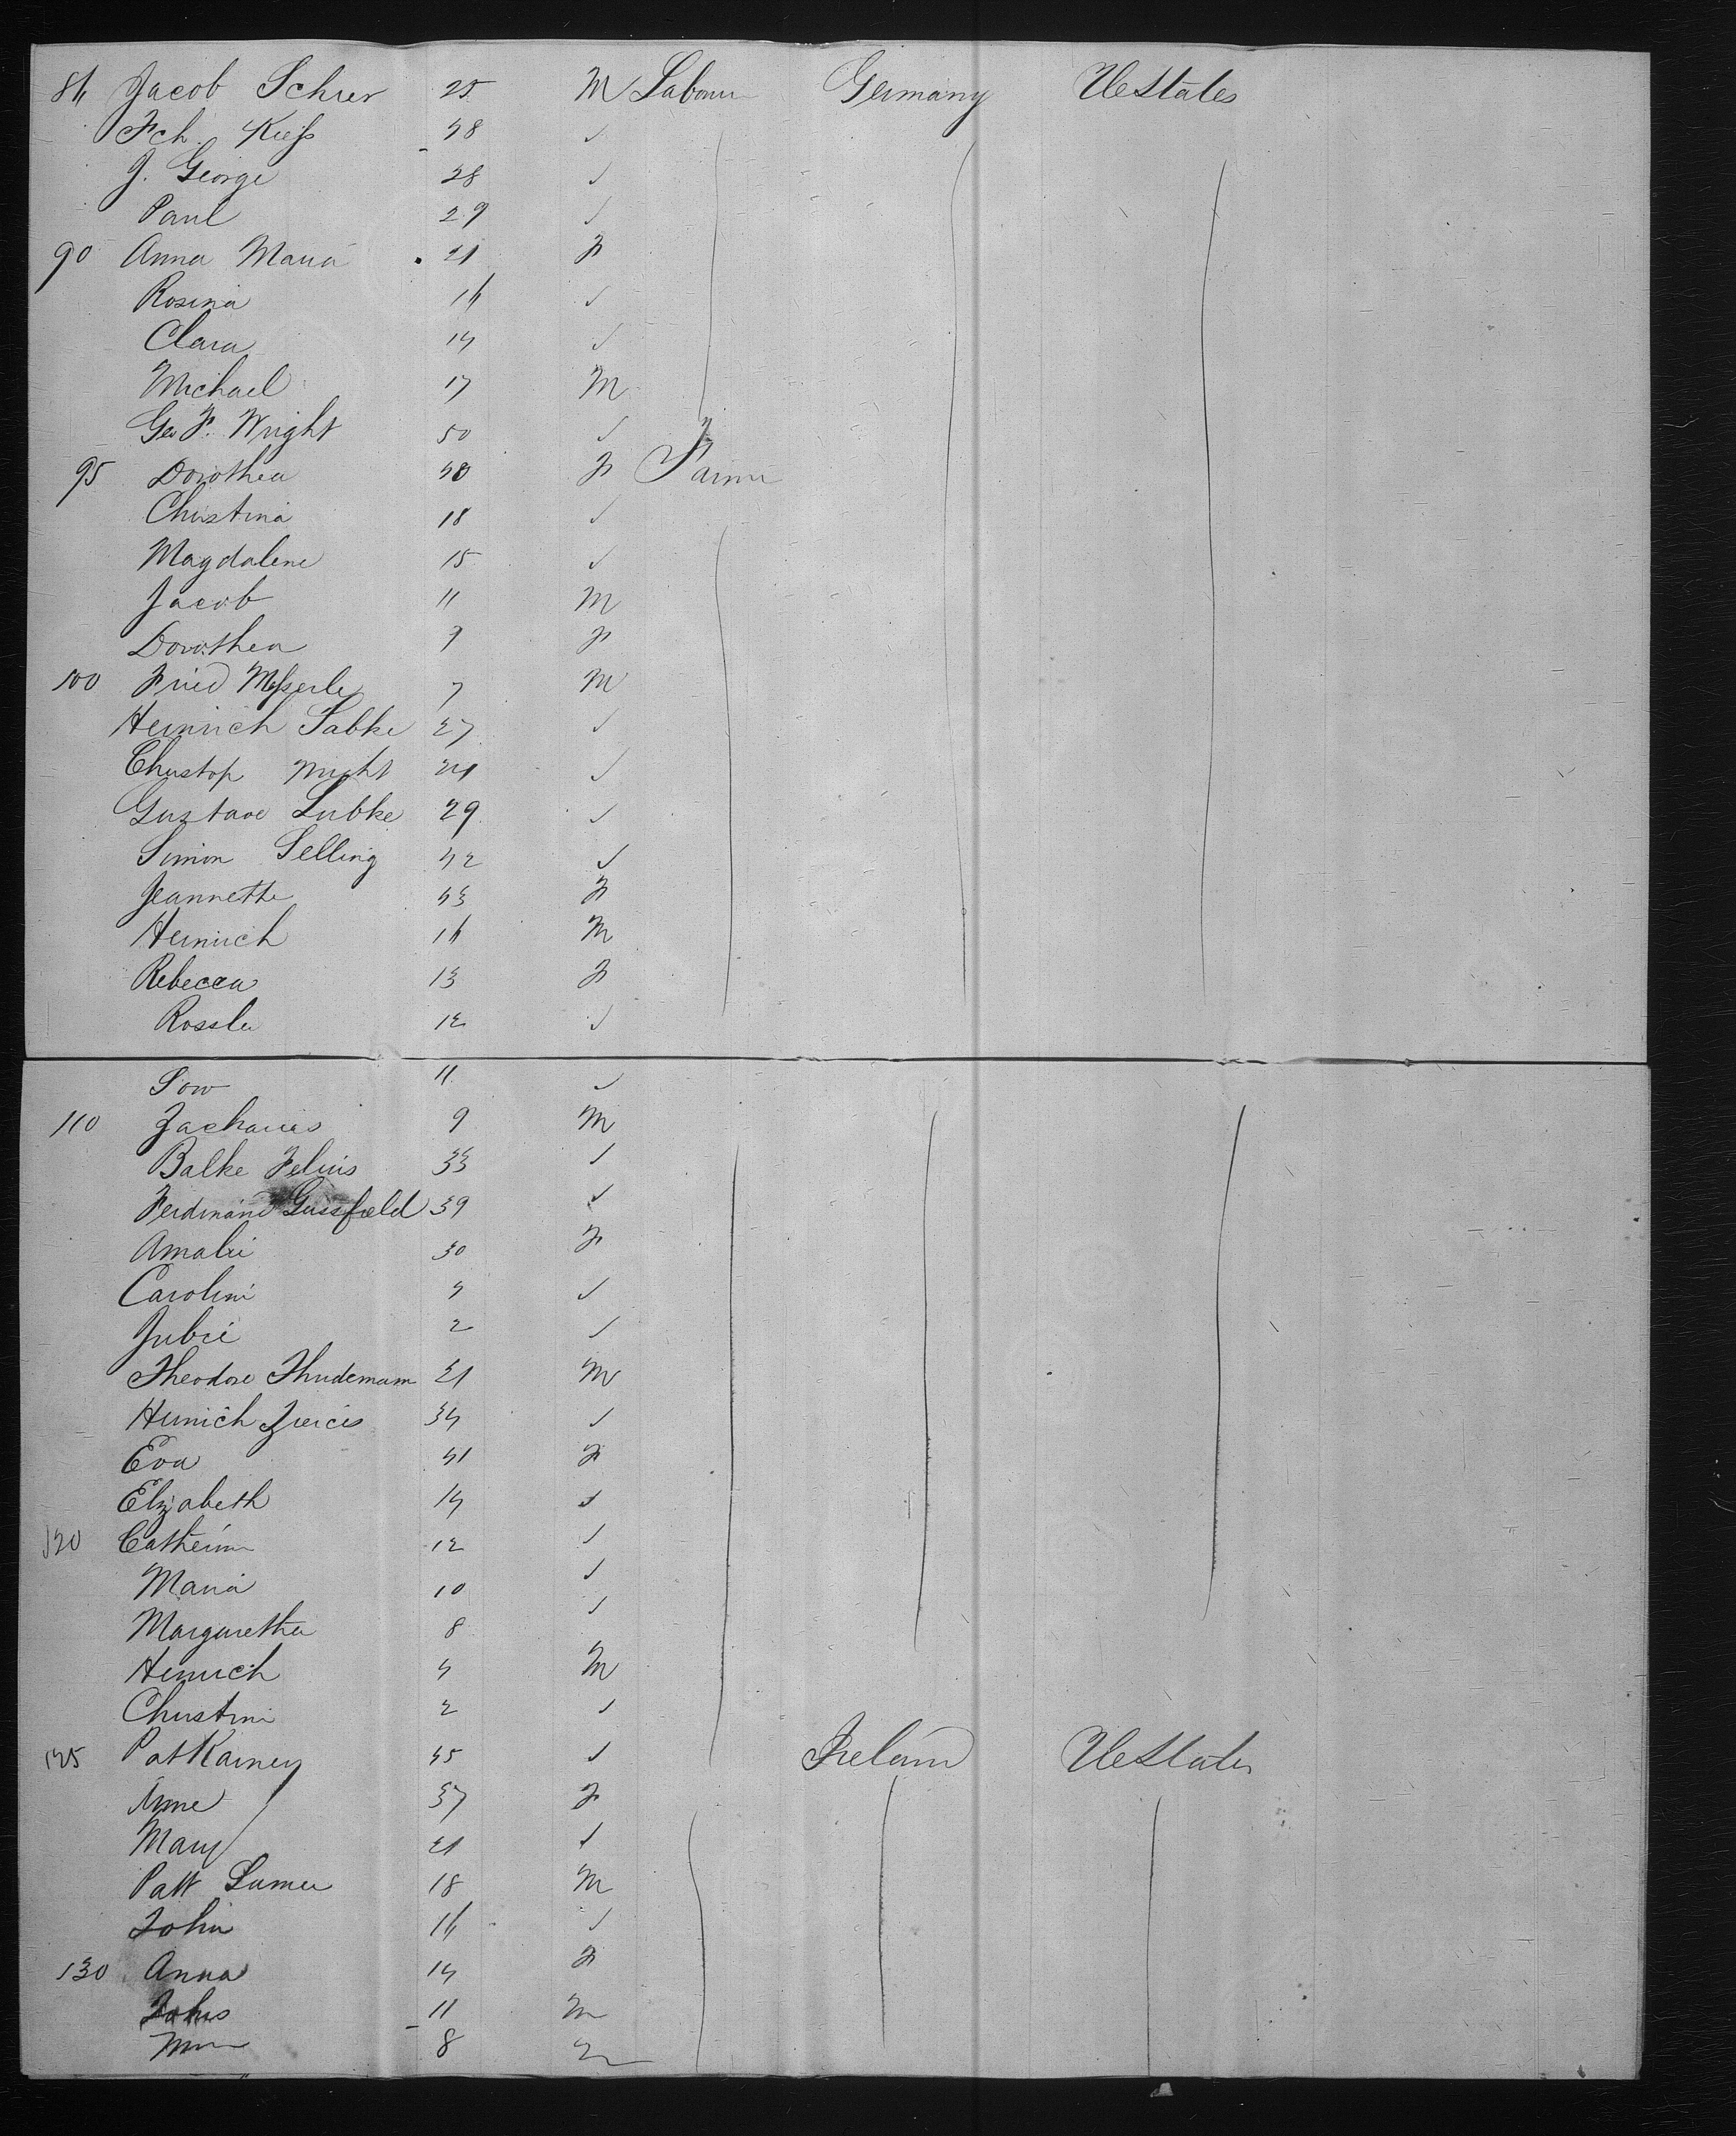 86 Jacob Schur 25 M Labour Germany UeStates
Fch. Kiess 48 ✓
J. George 28 ✓
Paul 29 ✓
90 Anna Maria 21 F
Rosina 16 ✓
Clara 14 ✓
Michael 17 M
Geo F. Wright 50 ✓
95 Dorothea 48 F Farmr
Christina 18 ✓
Magdalene 15 ✓
Jacob 11 M
Dorothea 9 F
100 Fried Messerle 7 M
Heinrich Labke 27 ✓
Christop Wright 24 ✓
Gustave Lubke 29 ✓
Simon Selling 42 ✓
Jeannette 43 F
Heinrich 16 M
Rebecca 13 F
Rossla 12 ✓
Sow 11 ✓
110 Zacharies 9 M
Balke Felius 33 ✓
Ferdinand Gussfield 39 ✓
Amalie 30 F
Caroline 4 ✓
Julie 2 ✓
Theodore Thudemann 21 M
Heinrich 34 ✓
Eva 41 F
Elizabeth 14 ✓
120 Catherine 12 ✓
Maria 10 ✓
Margaretha 8 ✓
Heinrich 4 M
Christine 2 ✓
125 Pat Karney 45 ✓ Ireland UeStates
Anne 37 F
Mary 21 ✓
Patt 18 M
John 16 ✓
130 Anna 14 F
11 M
8